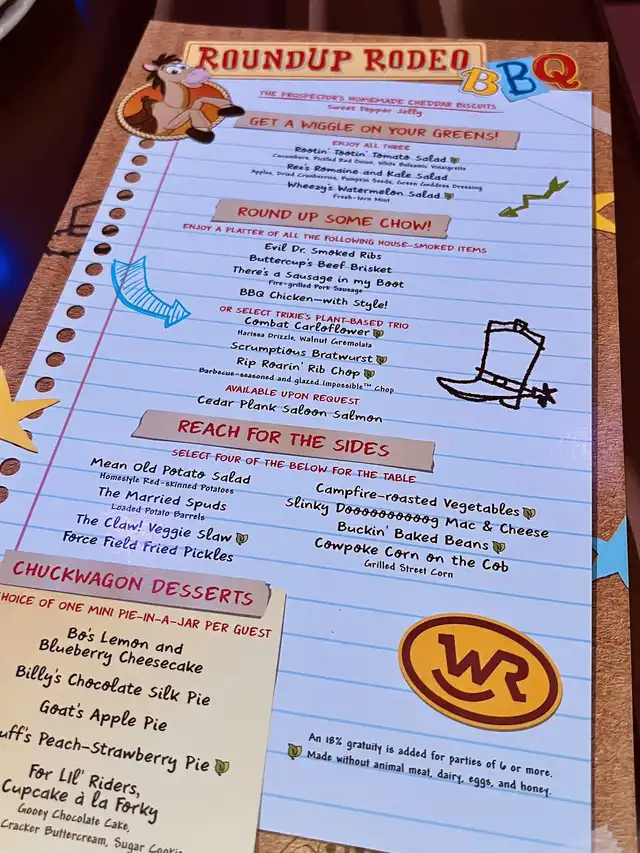 ROUNDUP RODEO
BBQ
THE PROSPECTOR'S HOMEMADE CHEDDAR BISCUITS
Sweet Pepper Jelly
GET A WIGGLE ON YOUR GREENS!
ENJOY ALL THREE
Rootin' Tootin' Tomato Salad
Cucumbers, Pickled Red Onion, White Balsamic Vinaigrette
Rex's Romaine and Kale Salad
Apples, Dried Cranberries, Pumpkin Seeds, Green Goddess Dressing
Wheezy's Watermelon Salad
Fresh-torn Mint
ROUND UP SOME CHOW!
ENJOY A PLATTER OF ALL THE FOLLOWING HOUSE-SMOKED ITEMS
Evil Dr. Smoked Ribs
Buttercup's Beef Brisket
There's a Sausage in my Boot
Fire-grilled Pork Sausage
BBQ Chicken—with Style!
OR SELECT TRIXIE'S PLANT-BASED TRIO
Combat Carloflower
Harissa Drizzle, Walnut Gremolata
Scrumptious Bratwurst
Rip Roarin' Rib Chop
Barbecue-seasoned and glazed Impossible™ Chop
AVAILABLE UPON REQUEST
Cedar Plank Saloon Salmon
REACH FOR THE SIDES
SELECT FOUR OF THE BELOW FOR THE TABLE
Mean Old Potato Salad
Homestyle Red-skinned Potatoes
The Married Spuds
Loaded Potato Barrels
The Claw! Veggie Slaw
Force Field Fried Pickles
Campfire-roasted Vegetables
Slinky Doooooooooog Mac & Cheese
Buckin' Baked Beans
Cowpoke Corn on the Cob
Grilled Street Corn
CHUCKWAGON DESSERTS
HOICE OF ONE MINI PIE-IN-A-JAR PER GUEST
Bo's Lemon and
Blueberry Cheesecake
Billy's Chocolate Silk Pie
Goat's Apple Pie
uff's Peach-Strawberry Pie
For Lil' Riders,
Cupcake à la Forky
Gooey Chocolate Cake,
Cracker Buttercream, Sugar Cookie
WR
An 18% gratuity is added for parties of 6 or more.
Made without animal meat, dairy, eggs, and honey.